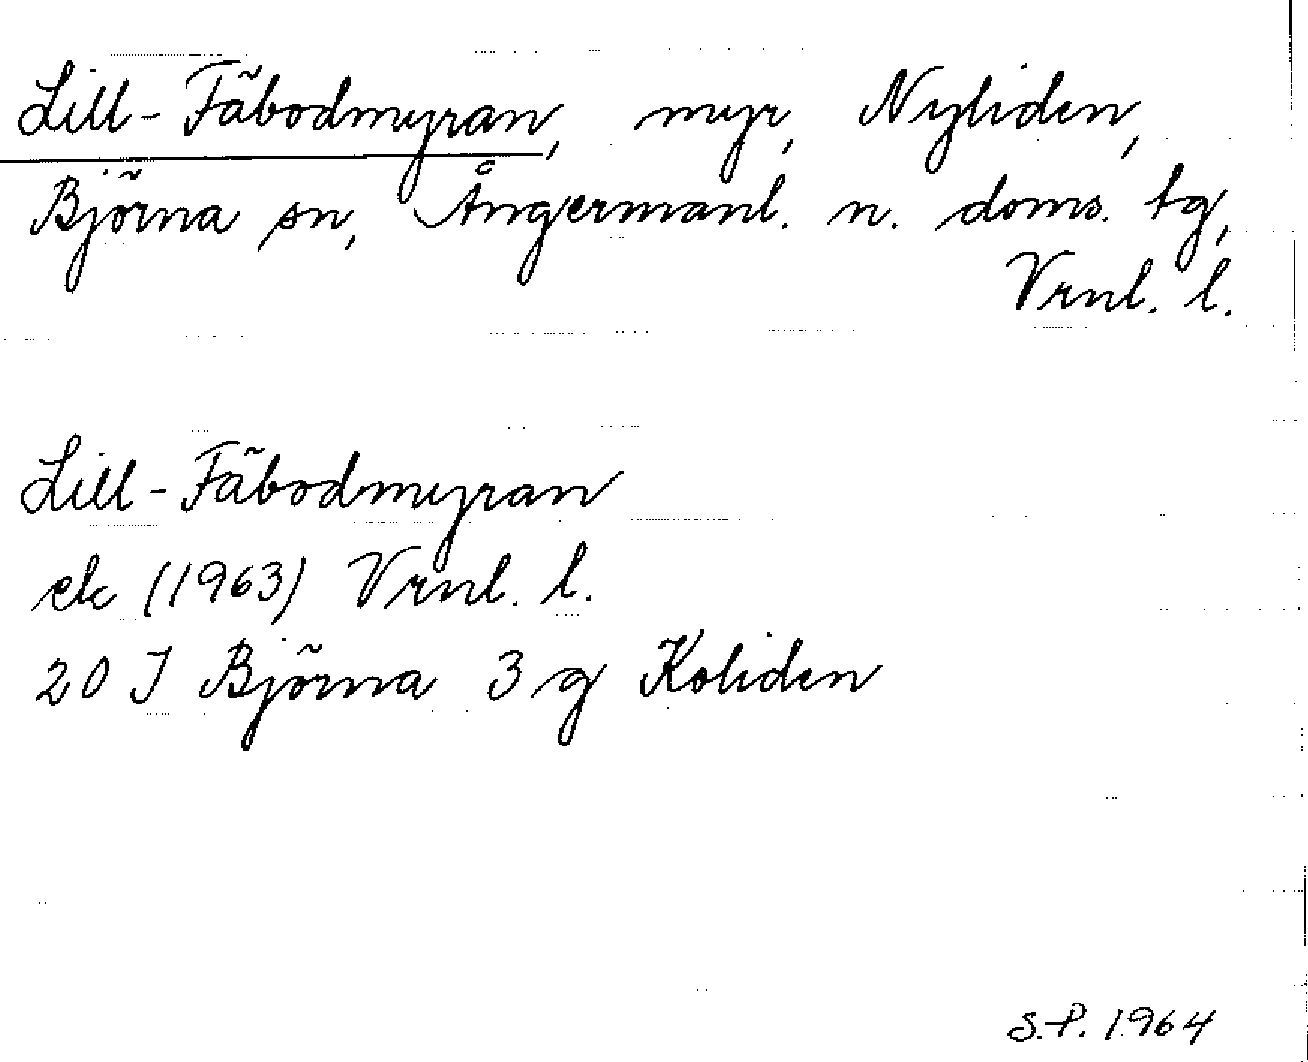 Lill-Fäbodmyran, myr, Nyliden,
Björna sn, Ångermanl. n. doms. tg,
Vrnl. l.
Lill-Fäbodmyran
ek (1963) Vrnl. l.
20 J Björna 3 g Koliden
S.P. 1964